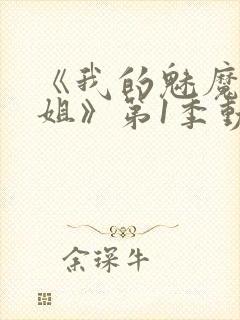 《我的魅魔
姐》第1季動
余琛牛